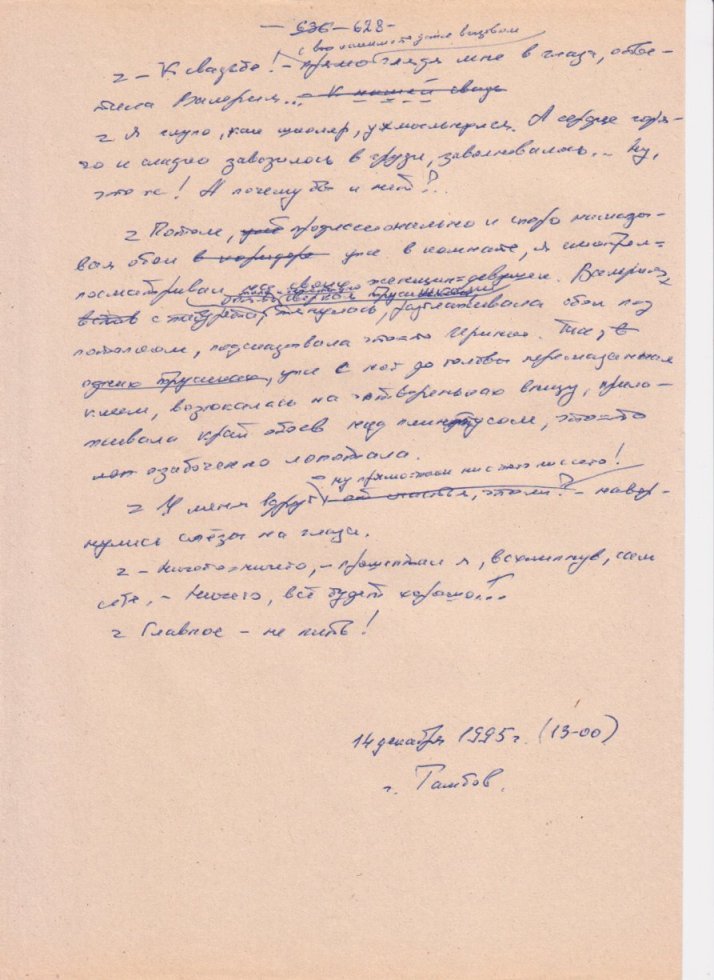 — 636 — 628 —
с каким-то даже вызовом
— К свадьбе! — прямо глядя мне в глаза, отве-
тила Валерия... — К нашей свадь
Я глупо, как школяр, ухмыльнулся. А сердце горя-
чо и сладко завозилось в груди, заволновалось... Ну,
что ж! А почему бы и нет?..
Потом, уже профессионально и споро намазы-
вая обои в коридоре уже в комнате, я смотрел-
посматривал на своих женщин-девушек. Валерия,
встав с табурета, тянулась, разглаживала обои под
потолком, подсказывала что-то Иринке. Та, в
одних трусиках, уже с ног до головы перемазанная
клеем, возюкалась на четвереньках внизу, прила-
живала край обоев над плинтусом, что-то
озабоченно лопотала.
— ну прямо-таки ни с того ни с сего! —
У меня вдруг от счастья, что ли? — навер-
нулись слёзы на глаза.
— Ничего-ничего, — прошептал я, всхлипнув, сам
себе, — Ничего, всё будет хорошо...
Главное — не пить!
14 декабря 1995 г. (13-00)
г. Тамбов.